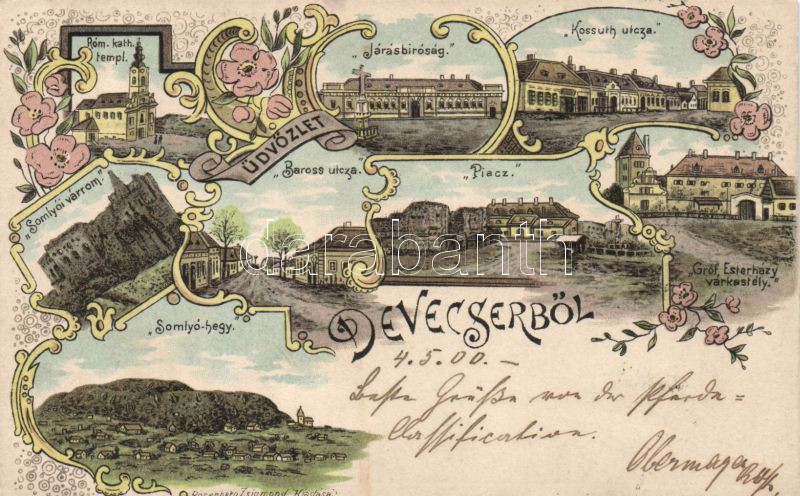 Róm. kath.
templ.
„Járásbíróság."
„Kossuth utcza."
ÜDVÖZLET
„Baross utcza."
„Piacz."
„Somlyói várrom."
„Gróf Esterházy
várkastély."
darabanth
„Somlyó-hegy.
DEVECSERBŐL
4.5.00. –
Beste Grüße von der Pferde =
Classification.
Rosenberg Zsigmond Kiadása